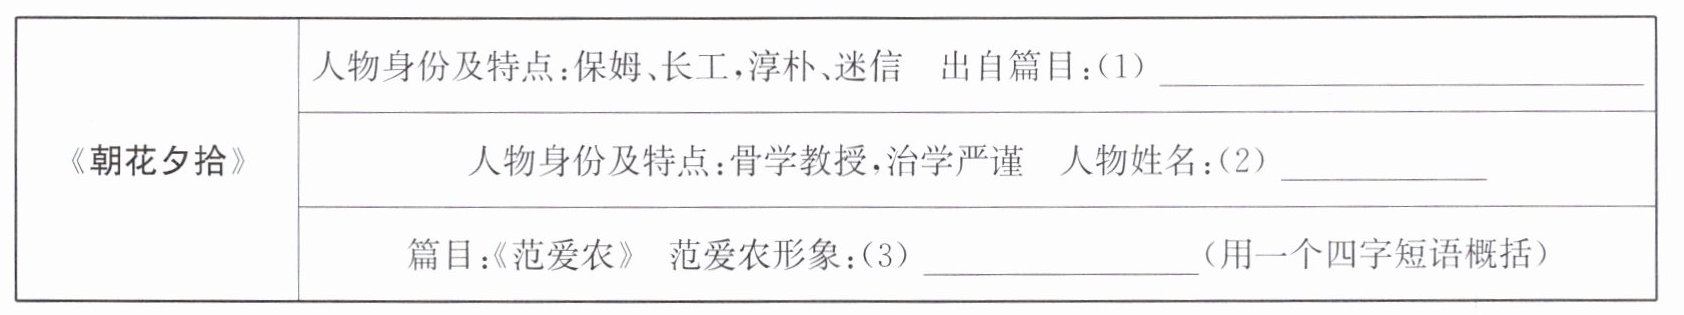 《朝花夕拾》
人物身份及特点:保姆、长工,淳朴、迷信 出自篇目:(1)
人物身份及特点:骨学教授,治学严谨 人物姓名:(2)
篇目:《范爱农》 范爱农形象:(3) (用一个四字短语概括)